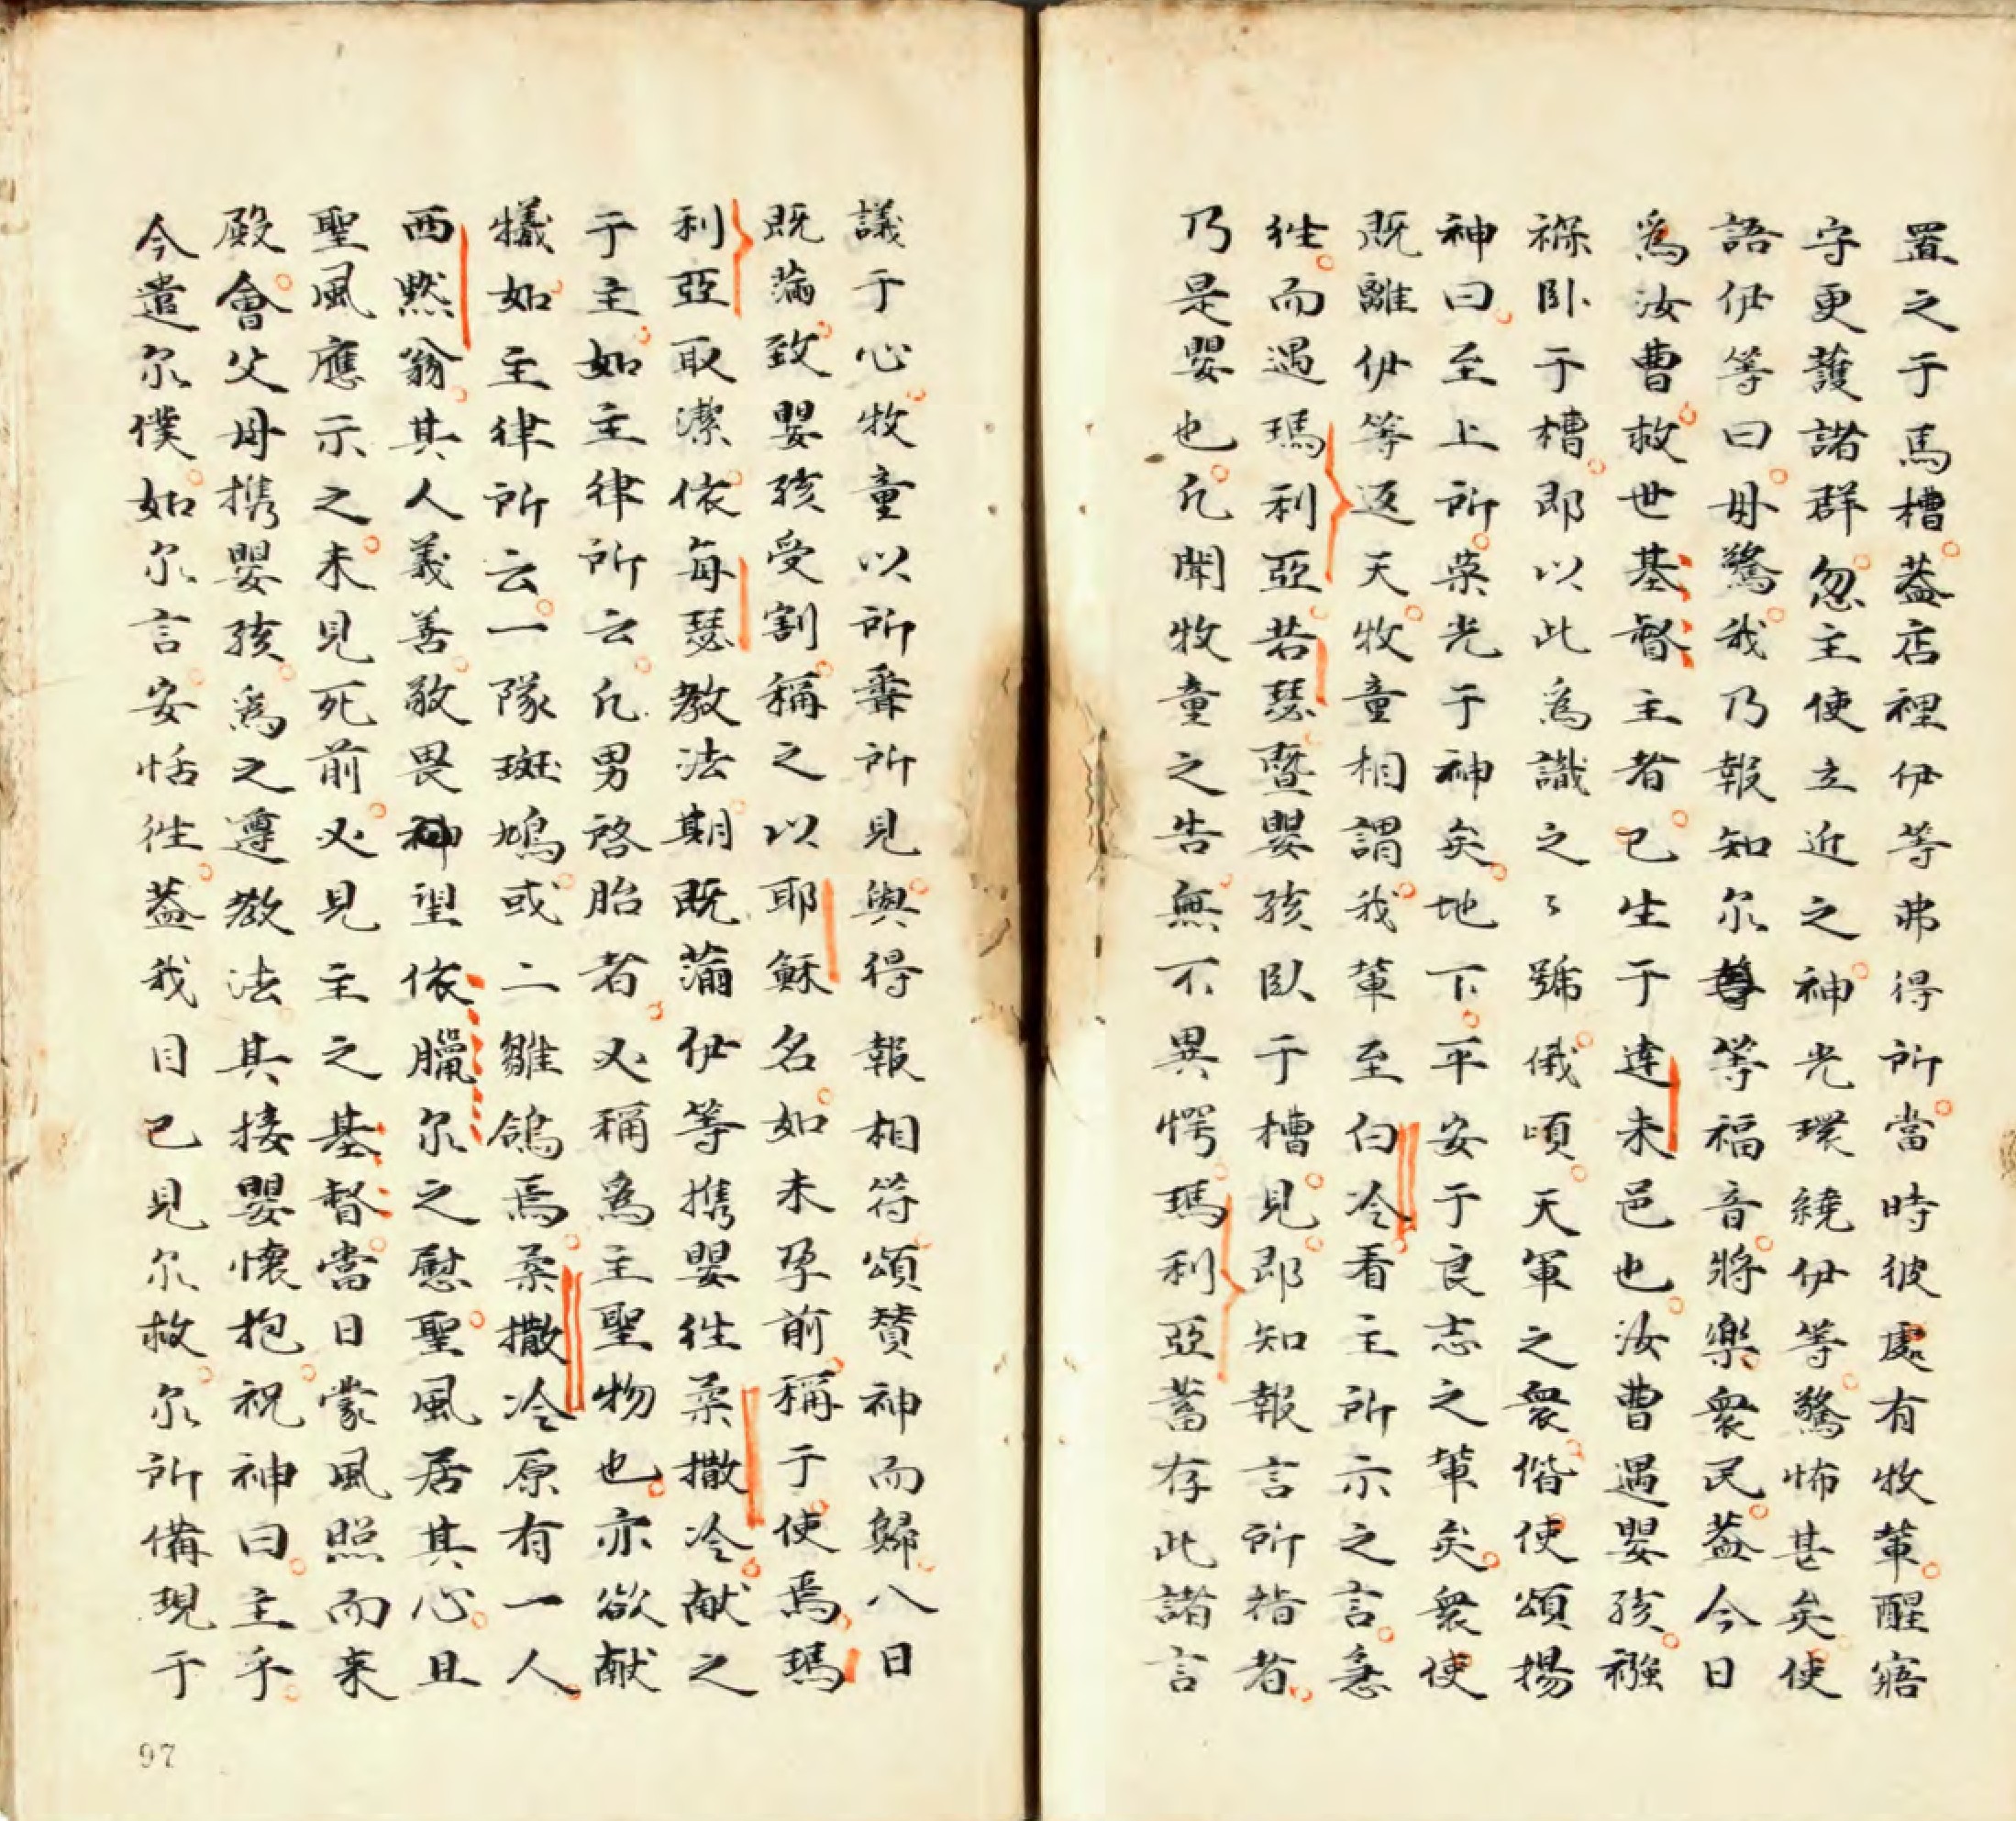 置之于馬槽。葢店裡伊等弗得所。當時彼處有牧輩。醒寤
守更護諸群。忽主使立近之。神光環繞伊等。驚怖甚矣。使
語伊等曰。毋驚。我乃報知尔等福音。將樂衆民。葢今日
爲汝曹。救世基督主者。已生于達未邑也。汝曹遇嬰孩。襁
褓卧于槽。即以此爲識之〻號。俄頃。天軍之衆。偕使頌揚
神曰。至上所。榮光于神矣。地下。平安于良志之輩矣。衆使
既離伊等返天。牧童相謂。我輩至白冷。看主所示之言。急
徃。而遇瑪利亞。若瑟。暨嬰孩臥于槽。見。即知報言所指者。
乃是嬰也。凡聞牧童之告。無不異愕。瑪利亞蓄存此諸言
議于心。牧童以所聞所見。與得報相符。頌賛神而歸。八日
既滿。致嬰孩受割。稱之以耶穌名。如未孕前。稱于使焉。瑪
利亞取潔。依每瑟教法。期既滿。伊等携嬰徃柔撒冷。献之
于主。如主律所云。凡男啓胎者。必稱爲主聖物也。亦欲献
犠。如主律所云。一隊斑鳩。或二雛鴿焉。柔撒冷原有一人。
西黙翁。其人義善。敬畏神望依臘尔之慰。聖風居其心。且
聖風應示之。未見死前。必見主之基督。當日蒙風照而来
殿。會父母携嬰孩。爲之遵教法。其接嬰懷抱。祝神曰。主乎。
今遣尔僕。如尔言。安恬徃。葢我目已見尔救。尔所備現于
97